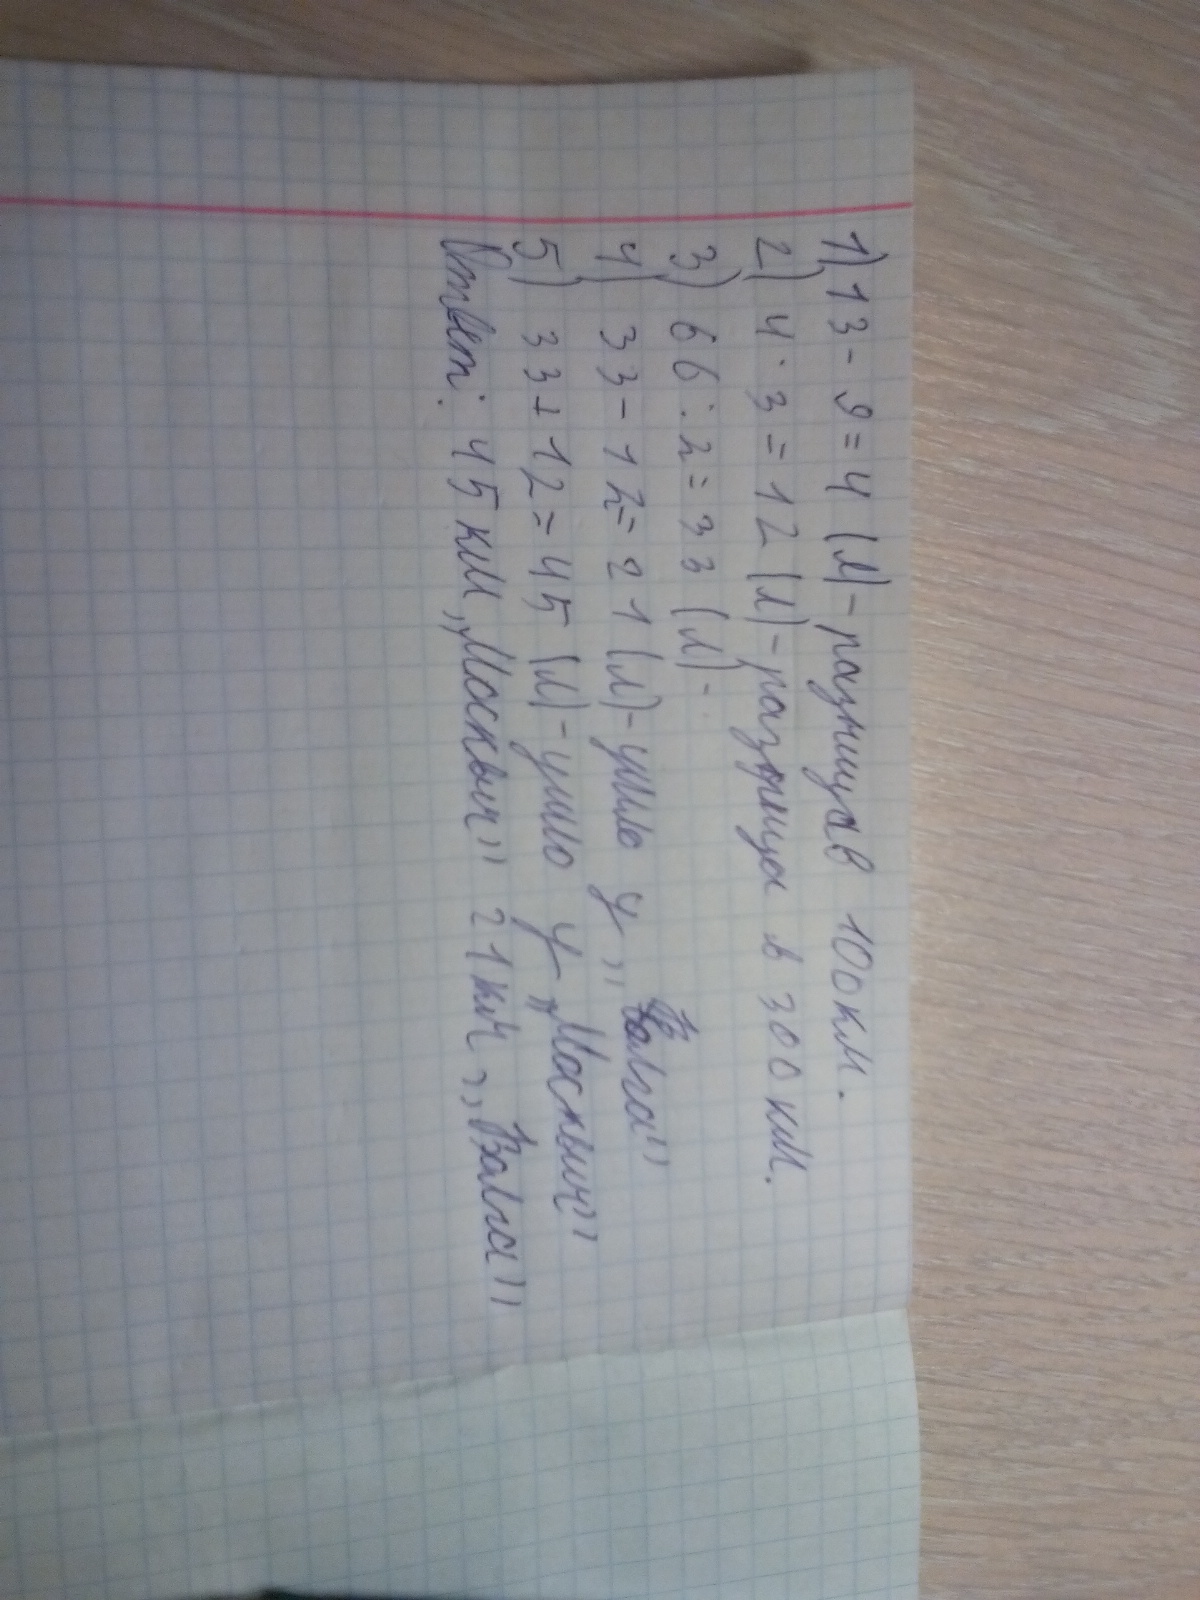 1) 13 - 9 = 4 (л) - разница в 100 км.
2) 4 · 3 = 12 (л) - разница в 300 км.
3) 66 : 2 = 33 (л) -
4) 33 - 12 = 21 (л) - ушло у „Валга”
5) 33 + 12 = 45 (л) - ушло у „Москвич”
Ответ: 45 км „Москвич” 21 км „Валга”